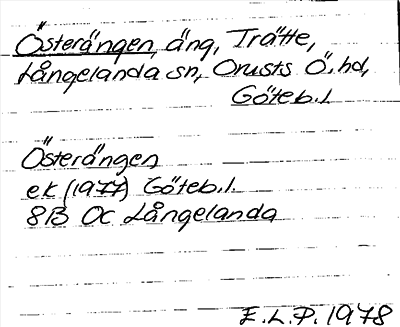 Österängen, äng, Trätte,
Långelanda sn, Orusts Ö. hd,
Göteb.l
Österängen
ek (1977) Göteb.l.
8B 0c Långelanda
E.L.P. 1978